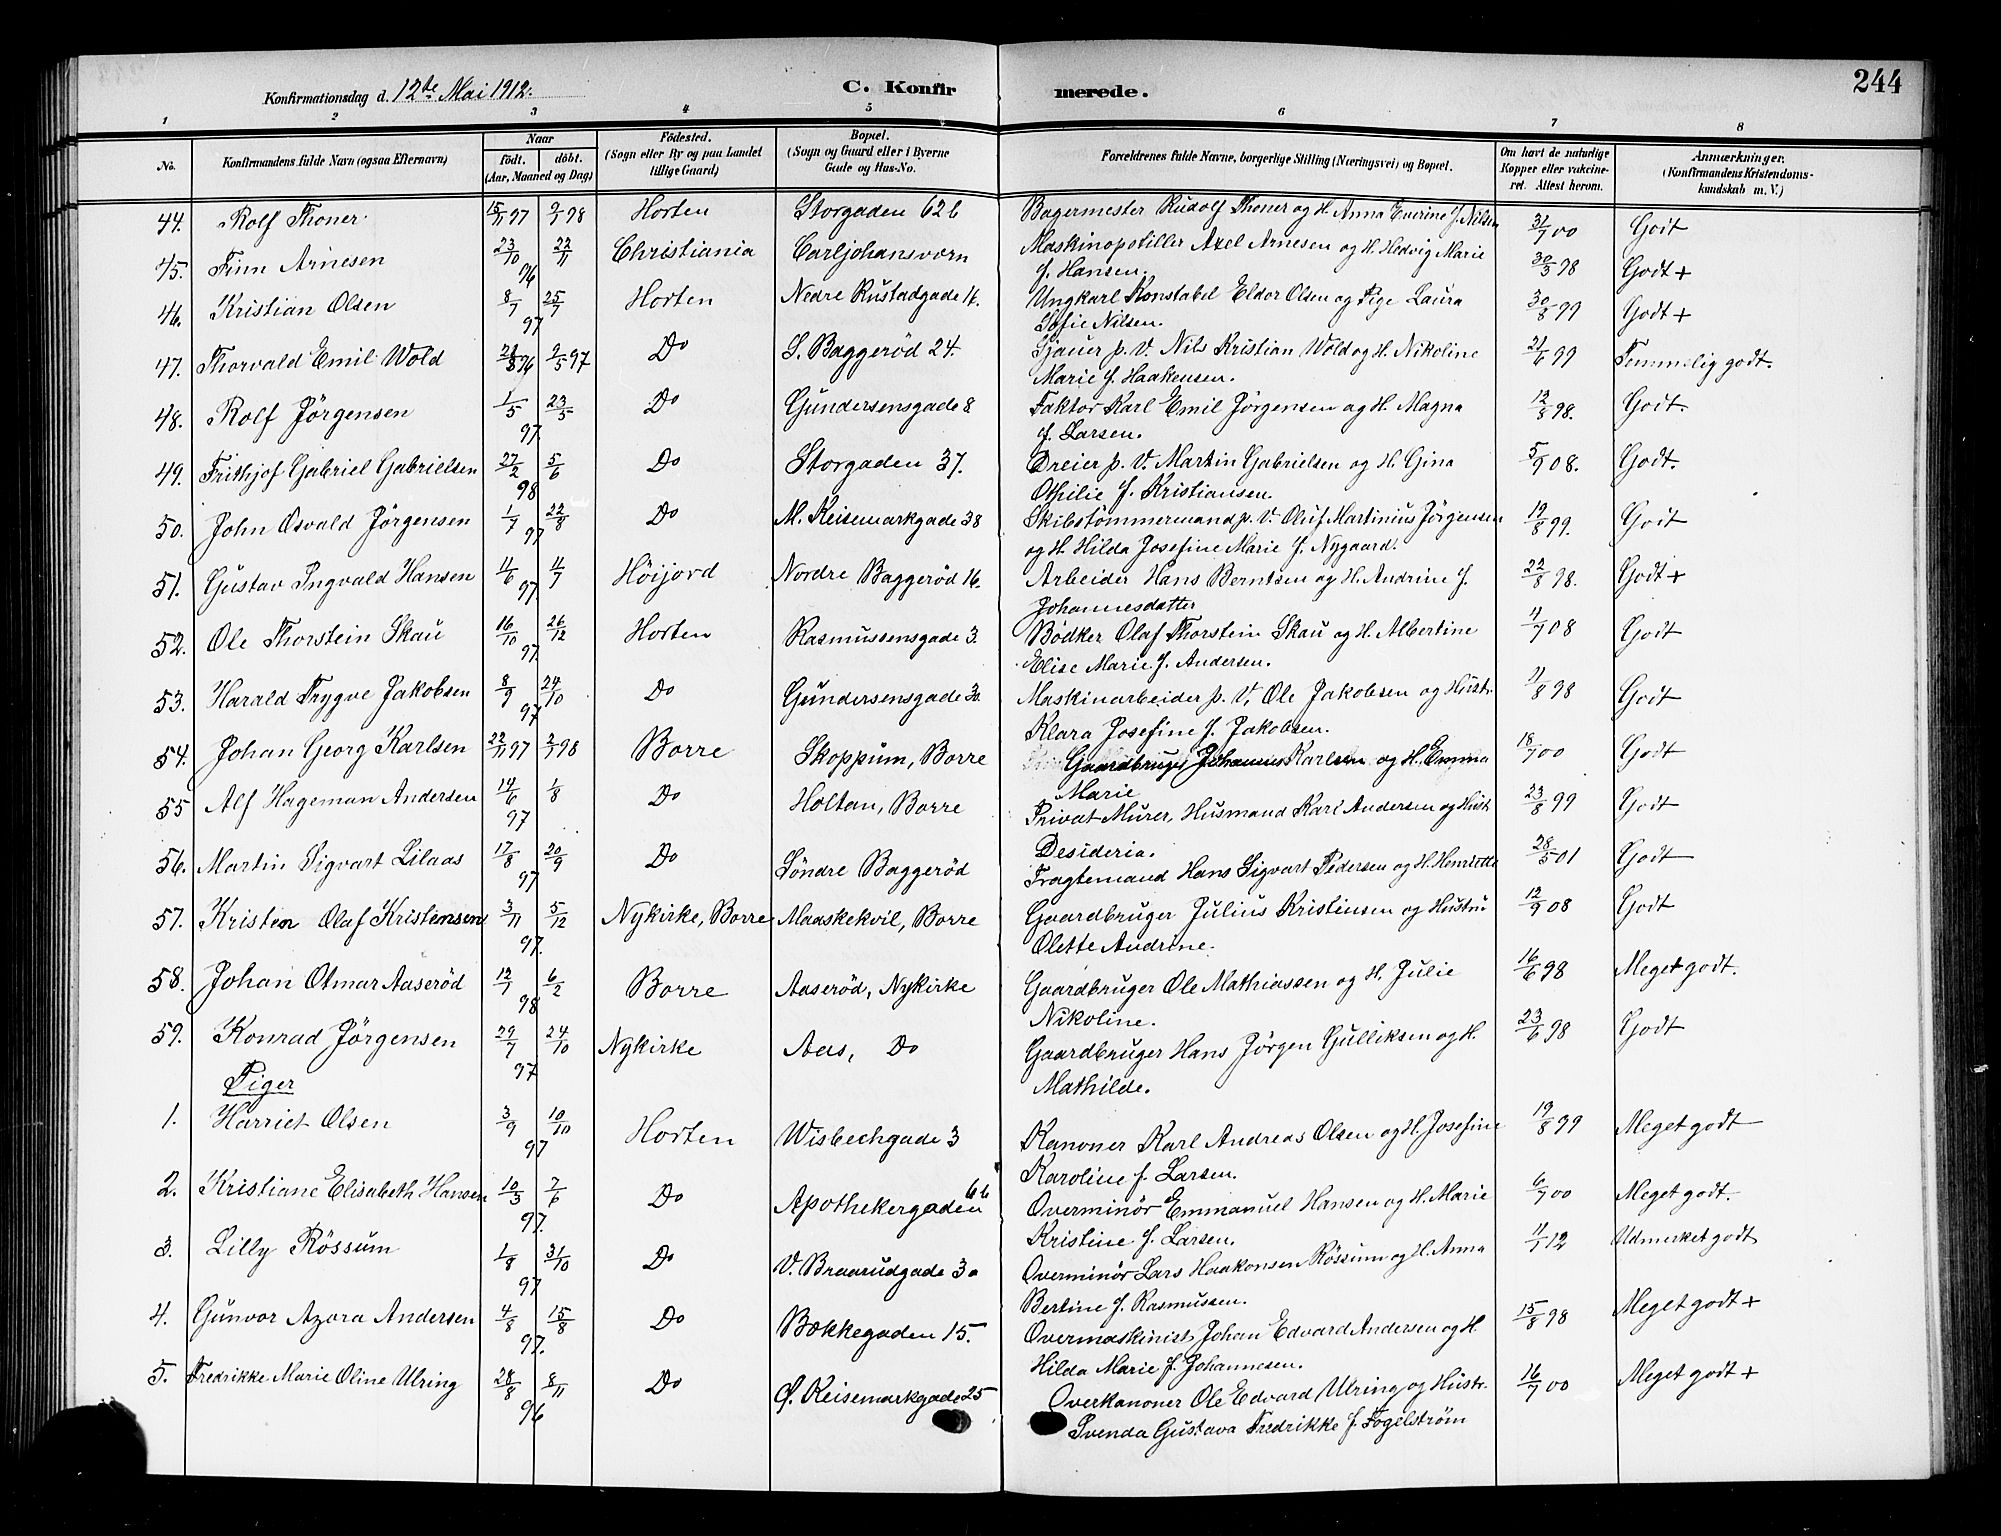 244
Konfirmationsdag d. 12te Mai 1912. C. Konfir merede.
1 2 3 4 5 6 7 8
No. Konfirmandens fulde Navn (ogsaa Efternavn) Naar födt. döbt. (Aar, Maaned og Dag) Födested. (Sogn eller By og paa Landet tillige Gaard) Bopæl. (Sogn og Gaard eller i Byerne Gade og Hus-No. Forældrenes fulde Navne, borgerlige Stilling (Næringsvei) og Bopæl. Om havt de naturlige Kopper eller vakcineret. Attest herom. Anmærkninger. (Konfirmandens Kristendomskundskab m. V.)
44. Rolf Thoner 15/11 97 9/1 98 Horten Storgaden 62 b Bagermester Rudolf Thoner og H. Anna Everine f. Nilsen 31/7 00 Godt
45. Finn Arnesen 23/10 96 22/11 Christiania Carljohansværn Maskinopstiller Axel Arnesen og H. Hedvig Marie
f. Hansen. 30/3 98 Godt +
46. Kristian Olsen 8/7 97 25/7 Horten Nedre Rustadgade 16. Ungkarl Konstabel Eldor Olsen og Pige Laura
Sofie Nilsen. 30/8 99 Godt +
47. Thorvald Emil Wold 96 9/5 97 Do S. Baggeröd 24. Sjauer p. V. Nils Kristian Wold og H. Nikoline
Marie f. Haakensen. 21/6 99 Temmelig godt.
48. Rolf Jörgensen 1/5 97 23/5 Do Gundersensgade 8 Faktor Karl Emil Jörgensen og H. Magna
f. Larsen. 12/8 98. Godt.
49. Frithjof Gabriel Gabrielsen 27/2 98 5/6 Do Storgaden 37. Dreier p. V. Martin Gabrielsen og H. Gina
Othilie f. Kristiansen. 5/9 08. Godt.
50. John Osvald Jörgensen 1/7 97 22/8 Do M. Keisemarkgade 38 Skibstömmermand p. V. Oluf Martinius Jörgensen
og H. Hilda Josefine Marie f. Nygaard. 19/8 99. Godt
51. Gustav Ingvald Hansen 11/6 97. 11/7 Höijord Nordre Baggeröd 16. Arbeider Hans Berntsen og H. Andrine f.
Johannesdatter 22/8 98. Godt +
52. Ole Thorstein Skau 16/10 97. 26/12 Horten Rasmussensgade 3. Bödker Olaf Thorstein Skau og H. Albertine
Elise Marie f. Andersen. 11/9 08 Godt
53. Harald Trygve Jakobsen 8/9 97 24/10 Do Gundersensgade 30. Maskinarbeider p. V. Ole Jakobsen og Hustr.
Klara Josefine f. Jakobsen. 11/8 98 Godt
54. Johan Georg Karlsen 22/11 97 2/1 98 Borre Skoppum, Borre Gaardbruger Johannes Karlsen og H. Emma
Marie 18/7 00 Godt
55 Alf Hageman Andersen 14/6 97 1/8 Do Holtan, Borre Privat Murer, Husmand Karl Andersen og Hust.
Desideria. 23/8 99 Godt
56. Martin Sigvart Lilaas 17/8 97 20/9 Do Söndre Baggeröd Fragtemand Hans Sigvart Pedersen og H. Henriette 28/5 01 Godt
57. Kristen Olaf Kristensen 3/11 97. 5/12 Nykirke, Borre Maaskekvil, Borre Gaardbruger Julius Kristensen og Hustru
Olette Andrine. 12/9 08 Godt
58. Johan Otmar Aaseröd 12/1 98 6/2 Borre Aaseröd, Nykirke Gaardbruger Ole Mathiassen og H. Julie
Nikoline. 16/6 98 Meget godt.
59. Konrad Jörgensen 29/7 97 24/10 Nykirke Aas, Do Gaardbruger Hans Jörgen Gulliksen og H.
Mathilde. 23/6 98 Godt
Piger
1. Harriet Olsen 3/9 97 10/10 Horten Wisbechgade 3 Kanoner Karl Andreas Olsen og H. Josefine
Karoline f. Larsen. 19/8 99 Meget godt
2. Kristiane Elisabeth Hansen 10/3 97. 7/6 Do Apothekergaden 6 b Overminör Emmanuel Hansen og H. Marie
Kristine f. Larsen. 6/7 00 Meget godt.
3. Lilly Rössum 1/8 97 31/10 Do V. Braarudgade 30 Overminör Lars Haakonsen Rössum og H. Anna
Bertine f. Rasmussen. 11/1 12 Udmerket godt
4. Gunvor Azora Andersen 4/8 97. 15/8 Do Bækkegaden 15. Overmaskinist Johan Edvard Andersen og H.
Hilda Marie f. Johannesen. 15/8 98 Meget godt +
5. Fredrikke Marie Oline Ulring 28/8 96 8/11 Do Ø. Keisemarkgade 25 Overkanoner Ole Edvard Ulring og Hustr.
Svenda Gustava Fredrikke f. Fogelström 16/7 00 Meget godt +